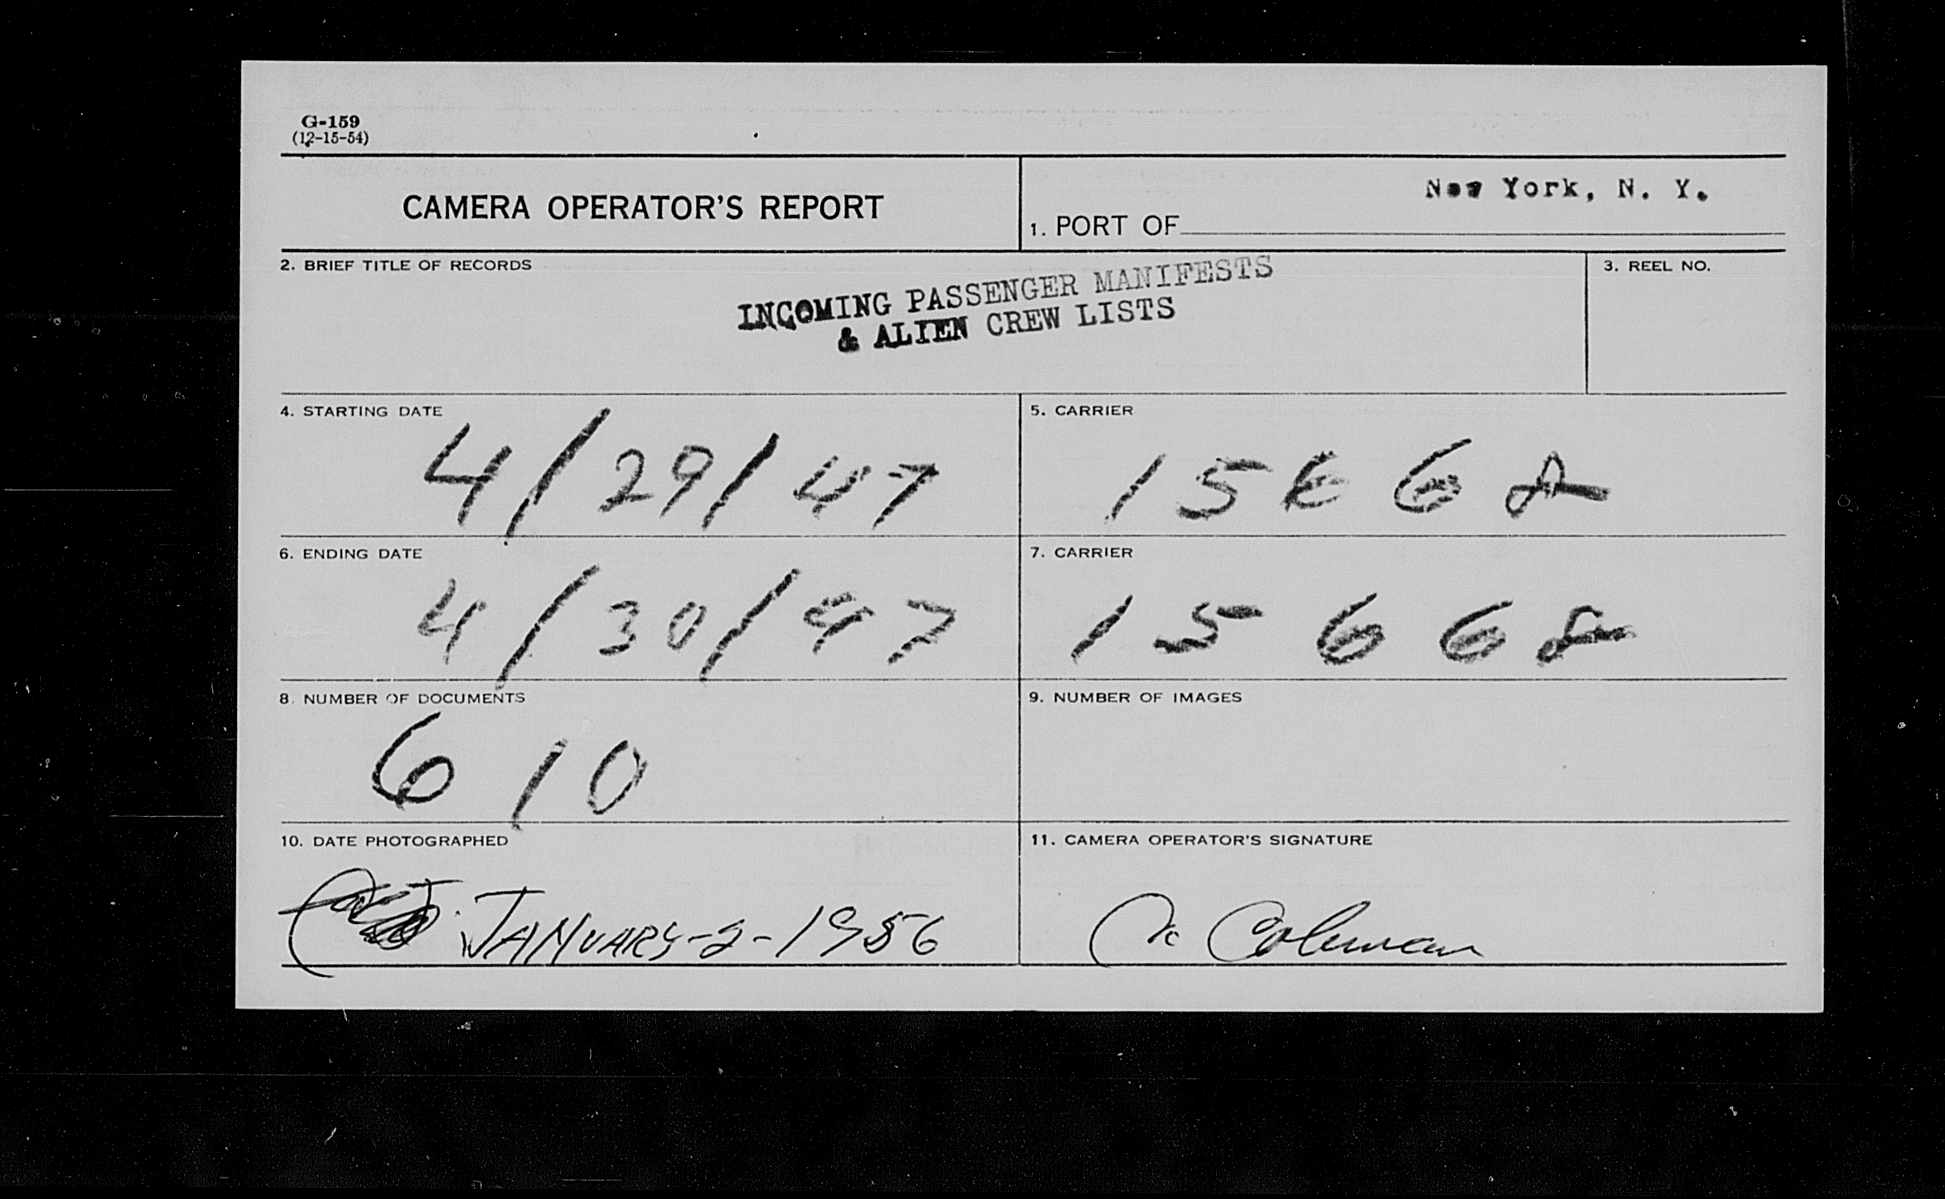 G-159
(12-15-54)
CAMERA OPERATOR'S REPORT
New York, N. Y.
1. PORT OF
2. BRIEF TITLE OF RECORDS
INCOMING PASSENGER MANIFESTS
& ALIEN CREW LISTS
3. REEL NO.
4. STARTING DATE
4/29/47
5. CARRIER
1566
6. ENDING DATE
4/30/47
7. CARRIER
1566
8. NUMBER OF DOCUMENTS
610
9. NUMBER OF IMAGES
10. DATE PHOTOGRAPHED
JANUARY-2-1956
11. CAMERA OPERATOR'S SIGNATURE
Coleman